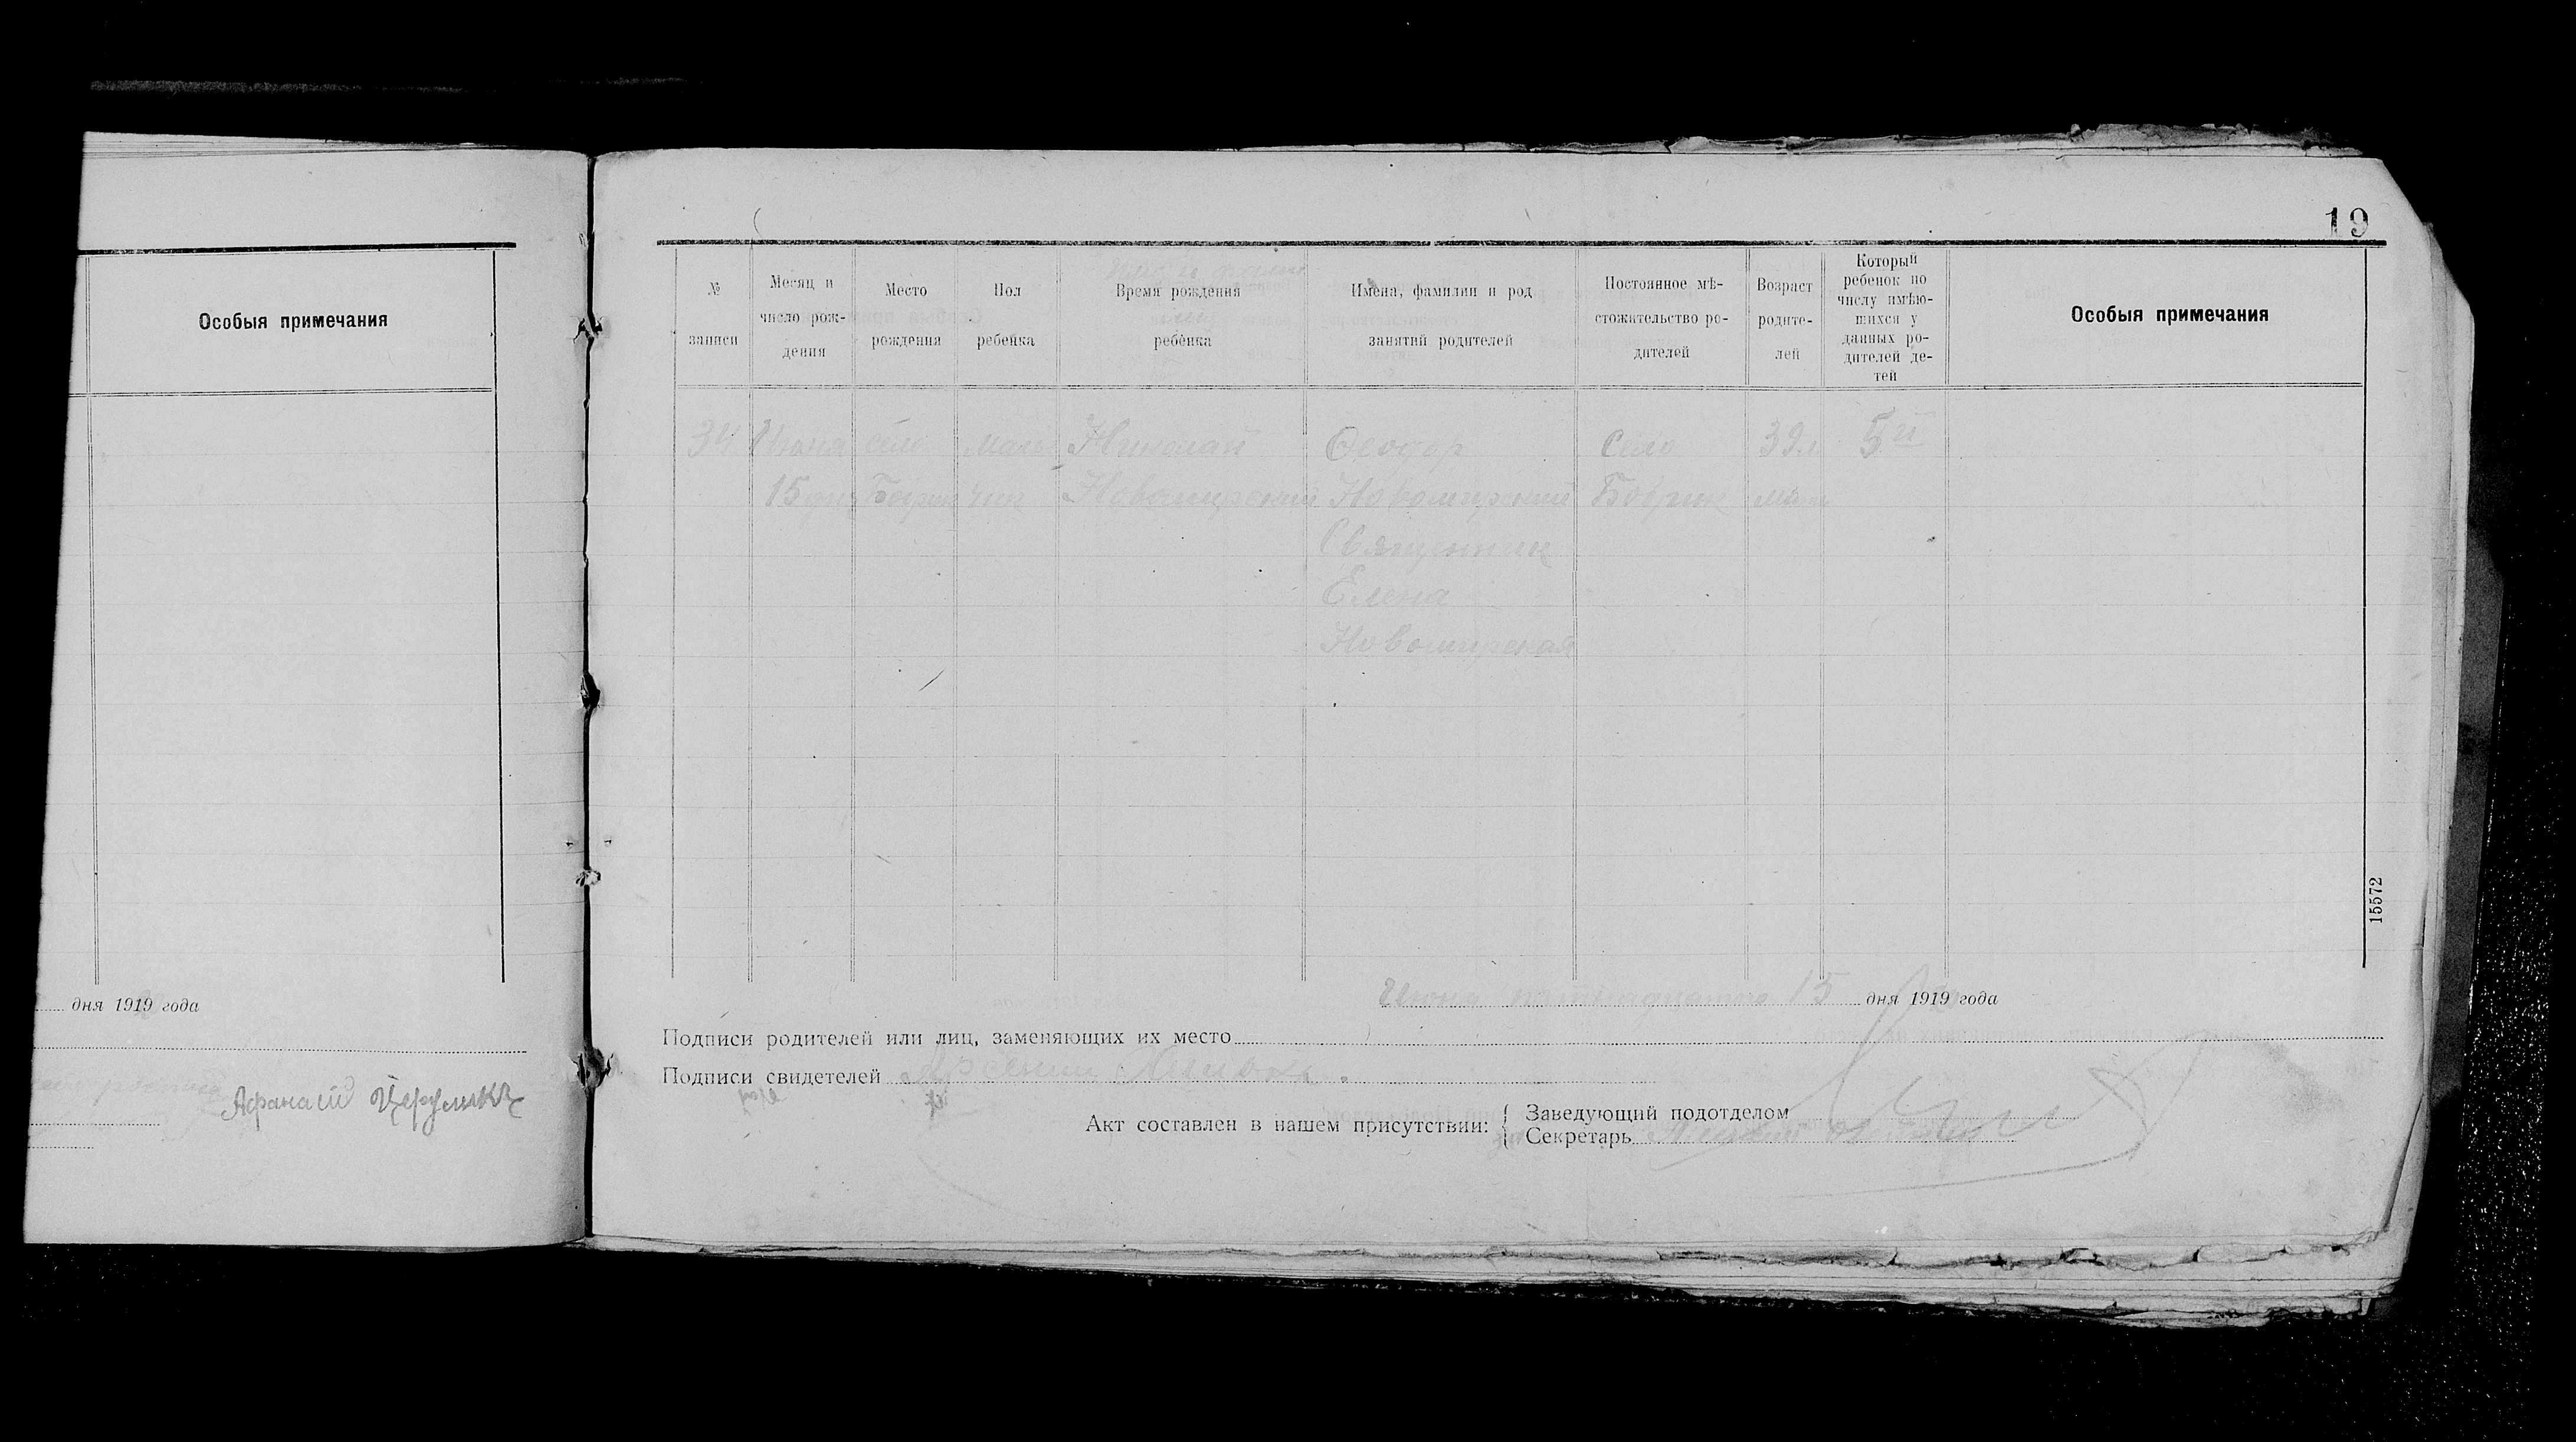 Особыя примечания
дня 1919 года
Афанасий
19
№ записи
Месяц и число рож-дения
Место рождения
Пол ребенка
Время рождения ребенка
Имена, фамилии и род занятий родителей
Постоянное мѣ-стожительство ро-дителей
Возраст родите-лей
Который ребенок по числу имѣю-шихся у данных ро-дителей де-тей
Особыя примечания
34 Июня село маль Николай Феодор Село 39 л 5й
15 дня Бобрик чик Новомирский Новомирский Бобрик
Священник
Елена
Новомирская
15572
Июня пятнадцатого 15 дня 1919 года
Подписи родителей или лиц, заменяющих их место
Подписи свидетелей
Акт составлен в нашем присутствии:
Заведующий подотделом
Секретарь